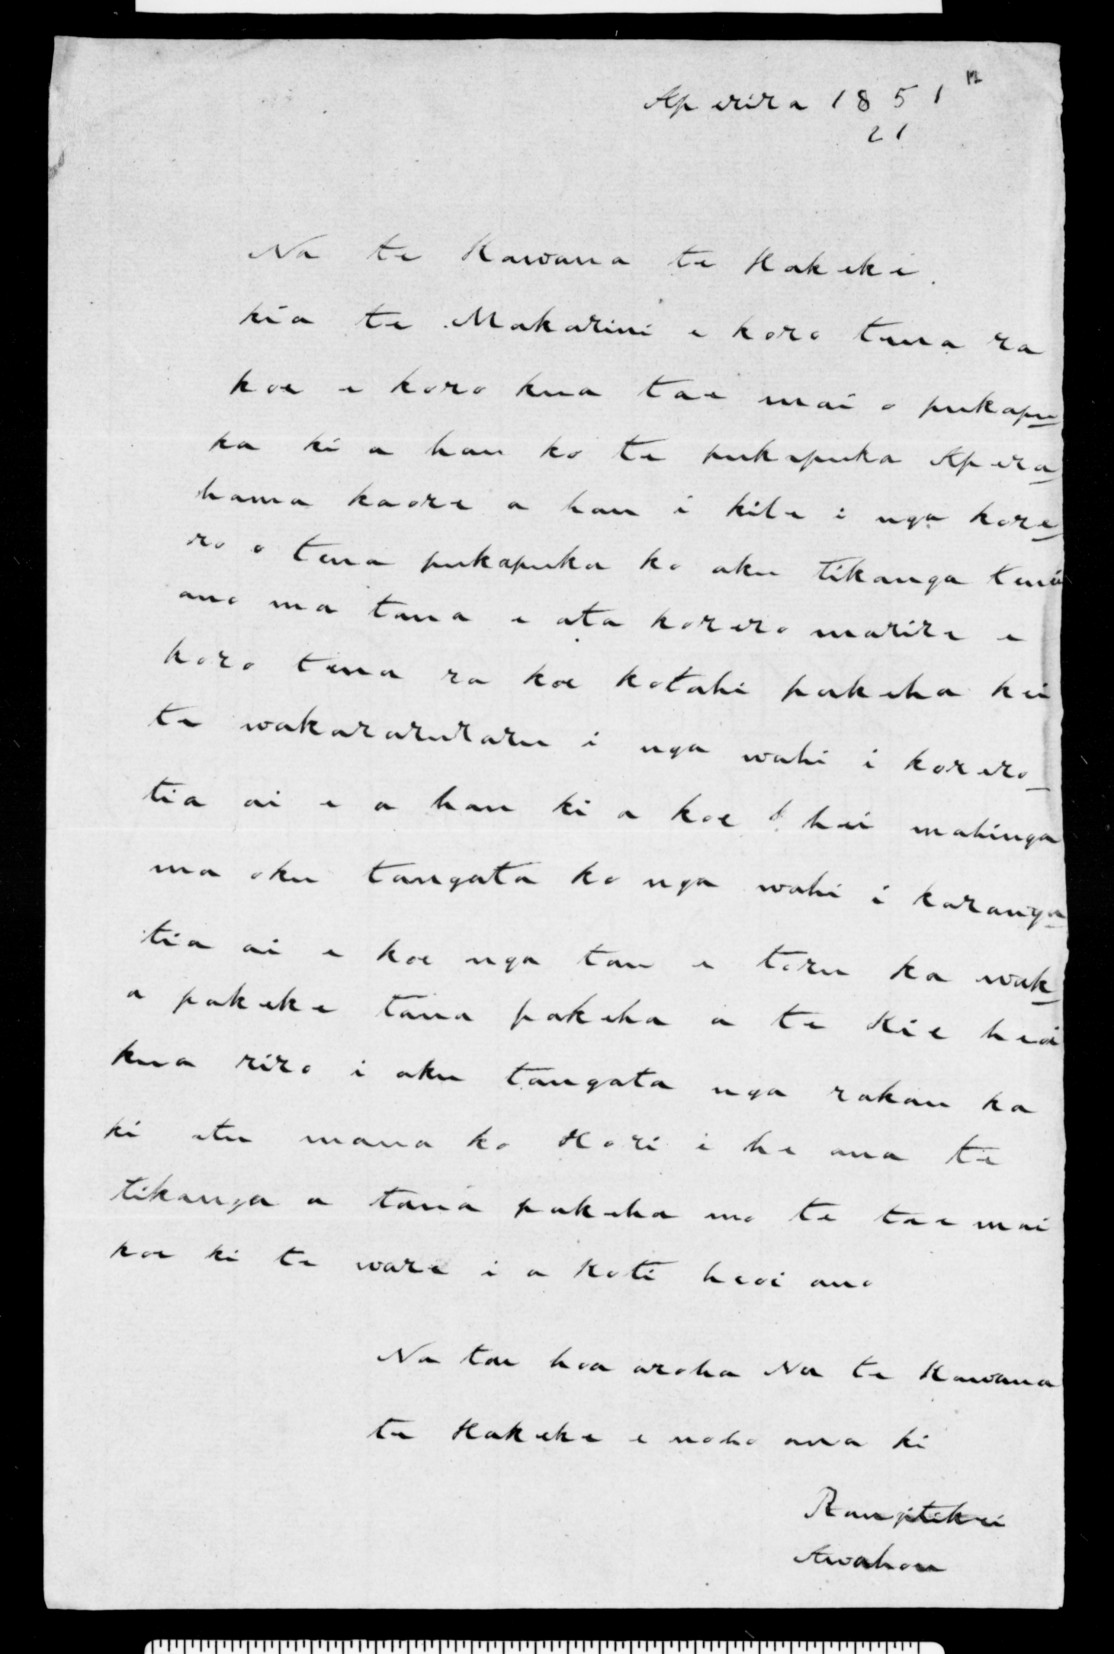 Aperira 1851
21
Na te Kawana te Hakeke.
kia te Makarini e koro tena ra
koe e koro kua tae mai o pukapu
ka ki a hau ko te pukapuka Apera
hama kaore a hau i kite i nga kore
ro o tena pukapuka ko aku tikanga tena
ano ma tana e ata korero marire e
koro tena ra koe kotahi pakeha kei
te wakararuraru i nga wahi i korero
tia ai e a hau ki a koe hei mahinga
ma oku tangata ko nga wahi i karanga
tia ai e koe nga tau e toru ka wak
a pakeke tana pakeha a te Kie heoi
kua riro i aku tangata nga rakau ka
ki atu mana ko Hori i he ana te
tikanga a tana pakeha mo te tae mai
koe ki te ware i a Koti heoi ano
Na tou hoa aroha Na te Kawana
te Hakeke e noho ana ki
Rangitikei
Awahou